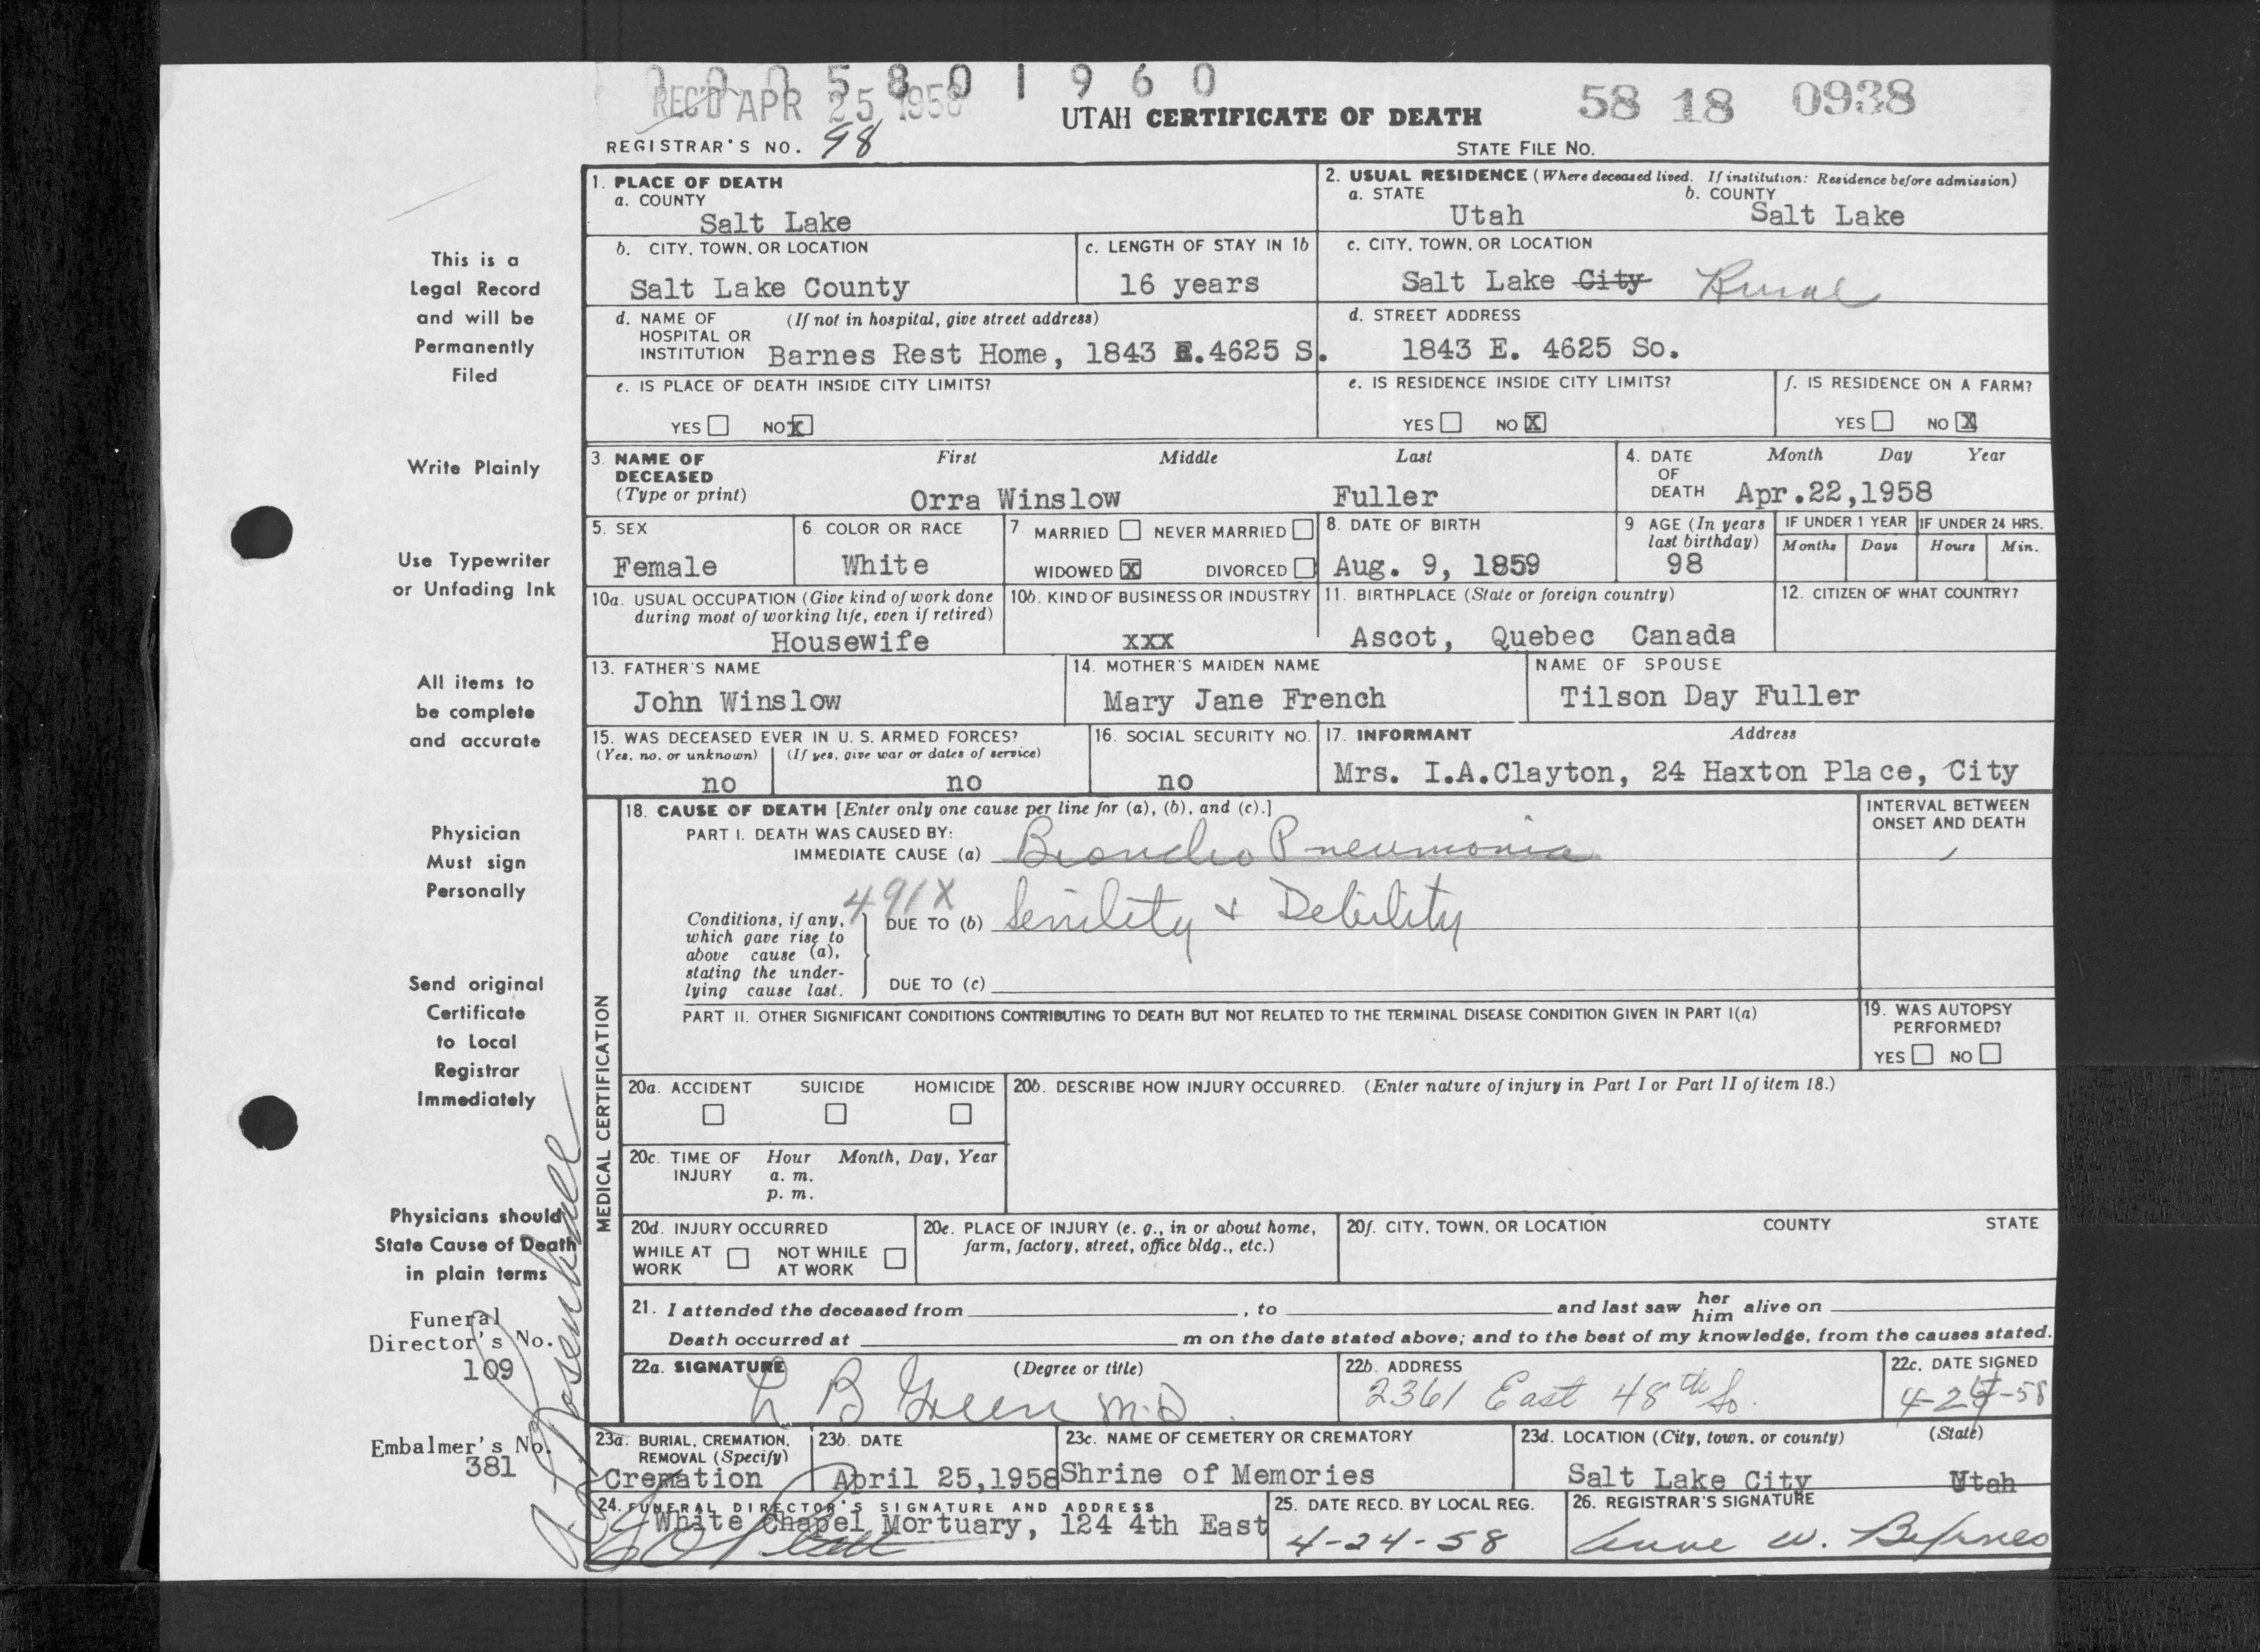 0 0 0 5 8 0 1 9 6 0
REC'D APR 25 1958
UTAH CERTIFICATE OF DEATH
58 18 0938
REGISTRAR'S NO. 98
STATE FILE NO.
1. PLACE OF DEATH
a. COUNTY
Salt Lake
2. USUAL RESIDENCE (Where deceased lived. If institution: Residence before admission)
a. STATE b. COUNTY
Utah Salt Lake
b. CITY, TOWN, OR LOCATION
Salt Lake County
c. LENGTH OF STAY IN 1b
16 years
c. CITY, TOWN, OR LOCATION
Salt Lake City Rural
d. NAME OF (If not in hospital, give street address)
HOSPITAL OR
INSTITUTION Barnes Rest Home, 1843 E.4625 S.
d. STREET ADDRESS
1843 E. 4625 So.
e. IS PLACE OF DEATH INSIDE CITY LIMITS?
YES NO X
e. IS RESIDENCE INSIDE CITY LIMITS?
YES NO X
f. IS RESIDENCE ON A FARM?
YES NO X
3. NAME OF First Middle Last
DECEASED
(Type or print) Orra Winslow Fuller
4. DATE Month Day Year
OF
DEATH Apr.22,1958
5. SEX
Female
6. COLOR OR RACE
White
7. MARRIED NEVER MARRIED
WIDOWED X DIVORCED
8. DATE OF BIRTH
Aug. 9, 1859
9 AGE (In years
last birthday)
98
IF UNDER 1 YEAR IF UNDER 24 HRS.
Months Days Hours Min.
10a. USUAL OCCUPATION (Give kind of work done
during most of working life, even if retired)
Housewife
10b. KIND OF BUSINESS OR INDUSTRY
xxx
11. BIRTHPLACE (State or foreign country)
Ascot, Quebec Canada
12. CITIZEN OF WHAT COUNTRY?
13. FATHER'S NAME
John Winslow
14. MOTHER'S MAIDEN NAME
Mary Jane French
NAME OF SPOUSE
Tilson Day Fuller
15. WAS DECEASED EVER IN U. S. ARMED FORCES?
(Yes, no, or unknown) (If yes, give war or dates of service)
no no
16. SOCIAL SECURITY NO.
no
17. INFORMANT Address
Mrs. I.A.Clayton, 24 Haxton Place, City
MEDICAL CERTIFICATION
18. CAUSE OF DEATH [Enter only one cause per line for (a), (b), and (c).]
PART I. DEATH WAS CAUSED BY:
IMMEDIATE CAUSE (a) Broncho Pneumonia
INTERVAL BETWEEN
ONSET AND DEATH
491X
Conditions, if any,
which gave rise to
above cause (a),
stating the under-
lying cause last.
DUE TO (b) Senility & Debility
DUE TO (c)
PART II. OTHER SIGNIFICANT CONDITIONS CONTRIBUTING TO DEATH BUT NOT RELATED TO THE TERMINAL DISEASE CONDITION GIVEN IN PART I(a)
19. WAS AUTOPSY
PERFORMED?
YES NO
20a. ACCIDENT SUICIDE HOMICIDE
20b. DESCRIBE HOW INJURY OCCURRED. (Enter nature of injury in Part I or Part II of item 18.)
20c. TIME OF Hour Month, Day, Year
INJURY a. m.
p. m.
20d. INJURY OCCURRED
WHILE AT NOT WHILE
WORK AT WORK
20e. PLACE OF INJURY (e. g., in or about home,
farm, factory, street, office bldg., etc.)
20f. CITY, TOWN, OR LOCATION COUNTY STATE
21. I attended the deceased from , to and last saw her him alive on
Death occurred at m on the date stated above; and to the best of my knowledge, from the causes stated.
22a. SIGNATURE (Degree or title)
L B Green M.D.
22b. ADDRESS
2361 East 48th So.
22c. DATE SIGNED
23a. BURIAL, CREMATION,
REMOVAL (Specify)
Cremation
23b. DATE
April 25,1958
23c. NAME OF CEMETERY OR CREMATORY
Shrine of Memories
23d. LOCATION (City, town, or county) (State)
Salt Lake City Utah
24. FUNERAL DIRECTOR'S SIGNATURE AND ADDRESS
White Chapel Mortuary, 124 4th East
25. DATE RECD. BY LOCAL REG.
4-24-58
26. REGISTRAR'S SIGNATURE
This is a
Legal Record
and will be
Permanently
Filed
Write Plainly
Use Typewriter
or Unfading Ink
All items to
be complete
and accurate
Physician
Must sign
Personally
Send original
Certificate
to Local
Registrar
Immediately
Physicians should
State Cause of Death
in plain terms
Funeral
Director's No.
109
Embalmer's No.
381